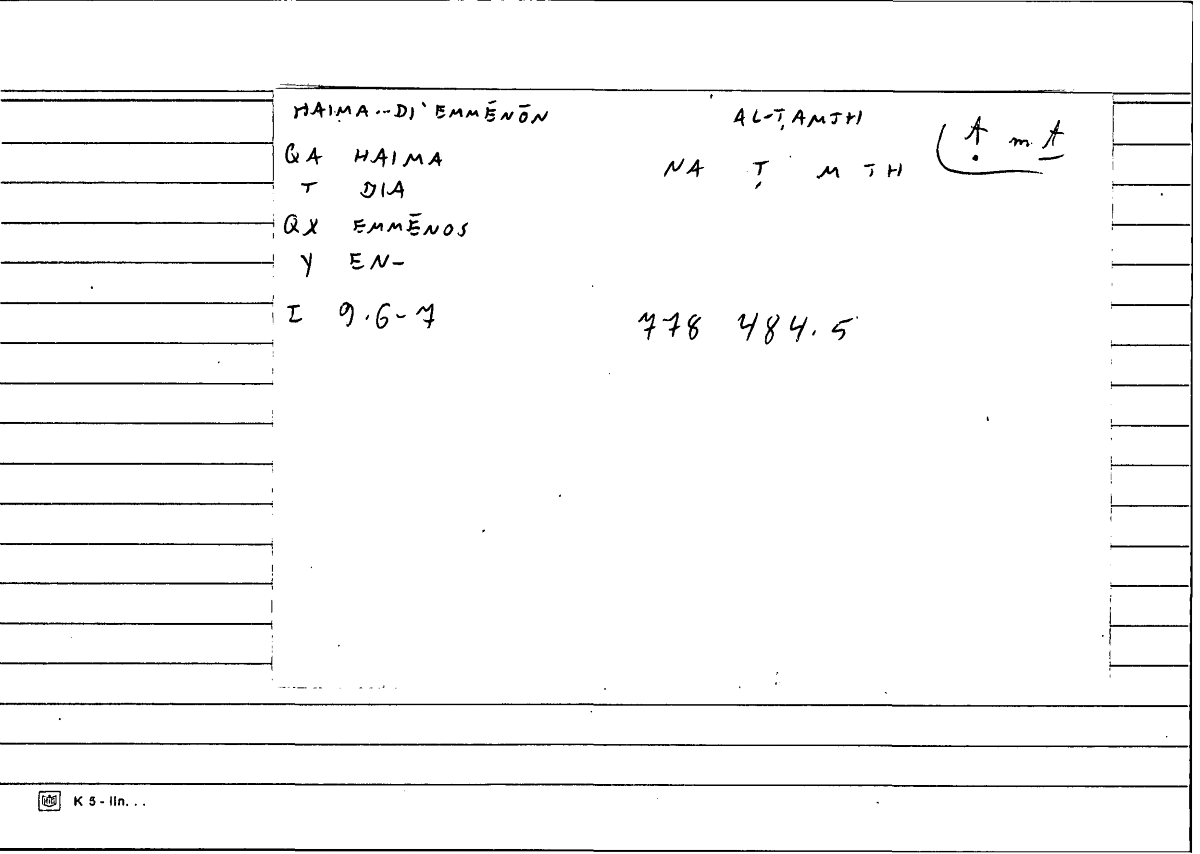 HAIMA...DI' EMMĒNŌN AL-ṬAMTH
QA HAIMA NA Ṭ M TH Ạ m A̲
T DIA
QX EMMĒNOS
Y EN-
I 9.6-7 778 484.5
K 5 - lin. . .